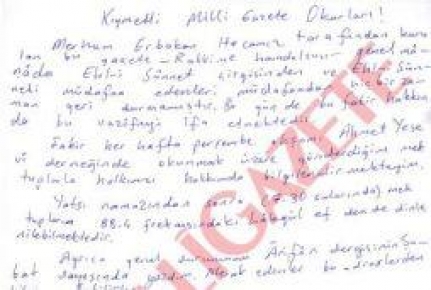 Kıymetli Milli Gazete Okurları!
Merhum Erbakan Hocamız tarafından kuru
lan bu gazete - Rabbime hamdolsun - genel mâ
nâda Ehl-i Sünnet çizgisinden ve Ehl-i Sün
neti müdafaa edenleri müdafaadan hiç bir za
man geri durmamıştır. Bu gün de bu fakir hakkın
da bu vazifeyi ifa etmektedir.
Fakir her hafta perşembe akşamı Ahmet Yese
vi derneğinde okunmak üzere gönderdiğim mek
tuplarla halkımızı hakkımda bilgilendirmekteyim.
Yatsı namazından sonra (7.30 sularında) mek
tuplarım 88.4 frekansındaki lâlegül ef emde de dinle
nilebilmektedir.
Ayrıca genel durumumu Ârifân dergisinin Şu
bat sayısında yazdım. Merak edenler bu adreslerden